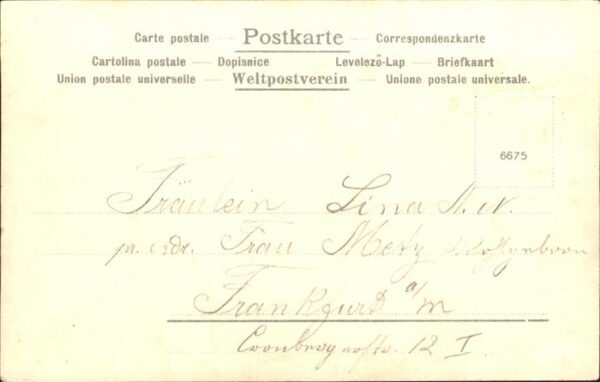 Carte postale — Postkarte — Correspondenzkarte
Cartolina postale — Dopisnice Levelező-Lap — Briefkaart
Union postale universelle — Weltpostverein — Unione postale universale.
6675
Fräulein Lina
Frau Metz
Frankfurt a/m
12 I